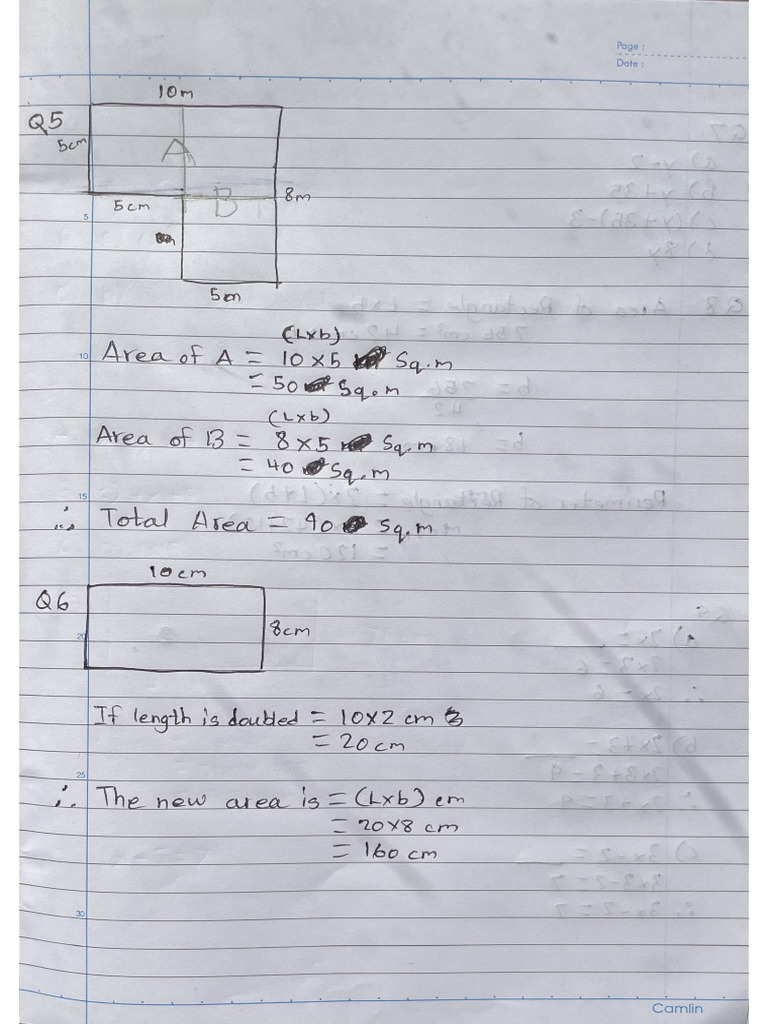 Page :
Date :
10m
Q5
5cm
A
5cm
B
8m
5
5m
(L×b)
10
Area of A = 10 × 5 Sq.m
= 50 Sq.m
(L×b)
Area of B = 8 × 5 Sq.m
= 40 Sq.m
15
∴ Total Area = 90 Sq.m
10cm
Q6
20
8cm
If length is doubled = 10×2 cm
= 20 cm
25
∴ The new area is = (L×b) cm
= 20×8 cm
= 160 cm
30
Camlin